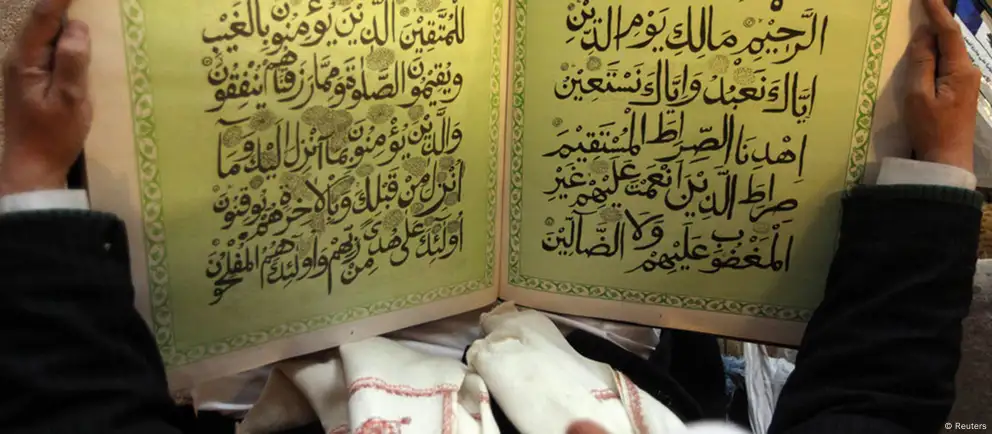 الرَّحِيْمِ مَالِكِ يَوْمِ الدِّيْنِ
اِيَّاكَ نَعْبُدُ وَاِيَّاكَ نَسْتَعِيْنُ
اِهْدِنَا الصِّرَاطَ الْمُسْتَقِيْمَ
صِرَاطَ الَّذِيْنَ اَنْعَمْتَ عَلَيْهِمْ غَيْرِ
الْمَغْضُوْبِ عَلَيْهِمْ وَلَا الضَّالِّيْنَ
لِلْمُتَّقِيْنَ الَّذِيْنَ يُؤْمِنُوْنَ بِالْغَيْبِ
وَيُقِيْمُوْنَ الصَّلٰوةَ وَمِمَّا رَزَقْنَاهُمْ يُنْفِقُوْنَ
وَالَّذِيْنَ يُؤْمِنُوْنَ بِمَا اُنْزِلَ اِلَيْكَ وَمَا
اُنْزِلَ مِنْ قَبْلِكَ وَبِالْاٰخِرَةِ هُمْ يُوْقِنُوْنَ
اُولٰئِكَ عَلٰى هُدًى مِنْ رَبِّهِمْ وَاُولٰئِكَ هُمُ الْمُفْلِحُوْنَ
© Reuters